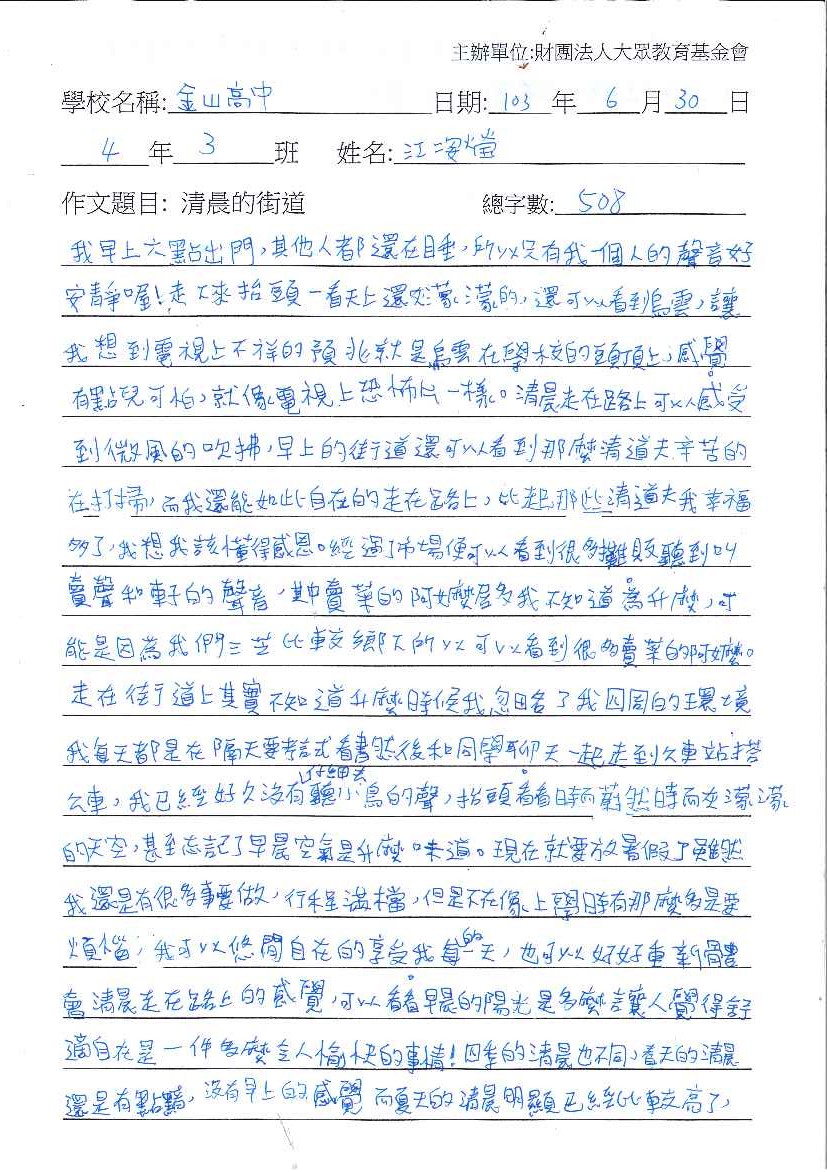 主辦單位:財團法人大眾教育基金會
學校名稱: 金山高中 日期: 103 年 6 月 30 日
4 年 3 班 姓名: 江
作文題目: 清晨的街道 總字數: 508
我早上六點出門,其他人都還在睡,所以只有我一個人的聲音好
安靜喔!走下來抬頭一看天上還灰濛濛的,還可以看到烏雲,讓
我想到電視上不祥的預兆就是烏雲在學校的頭頂上,感覺
有點兒可怕,就像電視上恐怖片一樣。清晨走在路上可以感受
到微風的吹拂,早上的街道還可以看到那麼清道夫辛苦的
在打掃,而我還能如此自在的走在路上,比起那些清道夫我幸福
多了,我想我該懂得感恩。經過了市場便可以看到很多攤販聽到叫
賣聲和車子的聲音,其中賣菜的阿嬤居多我不知道為什麼,可
能是因為我們三芝比較鄉下所以可以看到很多賣菜的阿嬤。
走在街道上其實不知道什麼時候我忽略了我四周的環境
我每天都是在隔天要考試看書然後和同學聊天一起走到公車站搭
公車,我已經好久沒有仔細去聽小鳥的聲,抬頭看看時而蔚然時而灰濛濛
的天空,甚至忘記了早晨空氣是什麼味道。現在就要放暑假了雖然
我還是有很多事要做,行程滿檔,但是不在像上學時有那麼多是要
煩惱,我可以悠閒自在的享受我每一天的,也可以好好重新體
會清晨走在路上的感覺,可以看看早晨的陽光是多麼讓人覺得舒
適自在是一件多麼令人愉快的事情!四季的清晨也不同,春天的清晨
還是有點黯,沒有早上的感覺而夏天的清晨明顯已經比較高了,